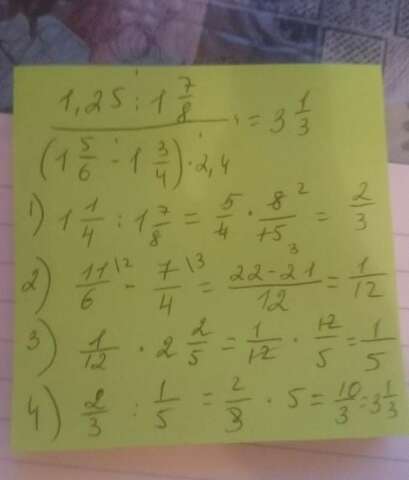 1,25 : 1 7/8
(1 5/6 - 1 3/4) · 2,4 = 3 1/3
1) 1 1/4 : 1 7/8 = 5/4 · 8²/15₃ = 2/3
2) 11/6 \2 - 7/4 \3 = 22-21/12 = 1/12
3) 1/12 · 2 2/5 = 1/12 · 12/5 = 1/5
4) 2/3 : 1/5 = 2/3 · 5 = 10/3 = 3 1/3